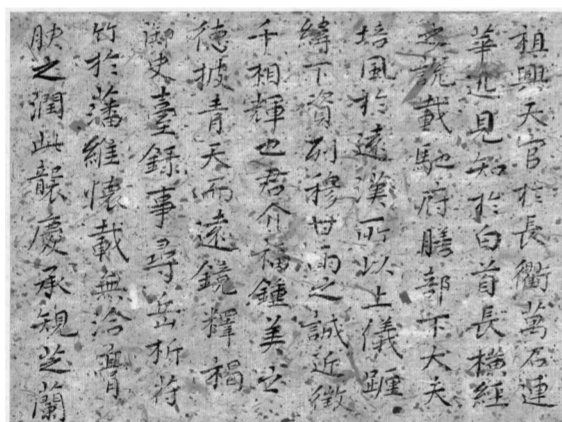 祖興天官於長衢萬石連
華近見知於白首長橫經
之說載馳府膳部下大夫
培風於遠漢所以上儀躔
緯下資列穆甘雨之誠近徵
千相輝也君介福鍾美宏
德披青天而遠鏡釋褐
御史臺録事尋岳析苻
竹於藩維懷載無洽膏
腴之潤此襲慶承規芝蘭